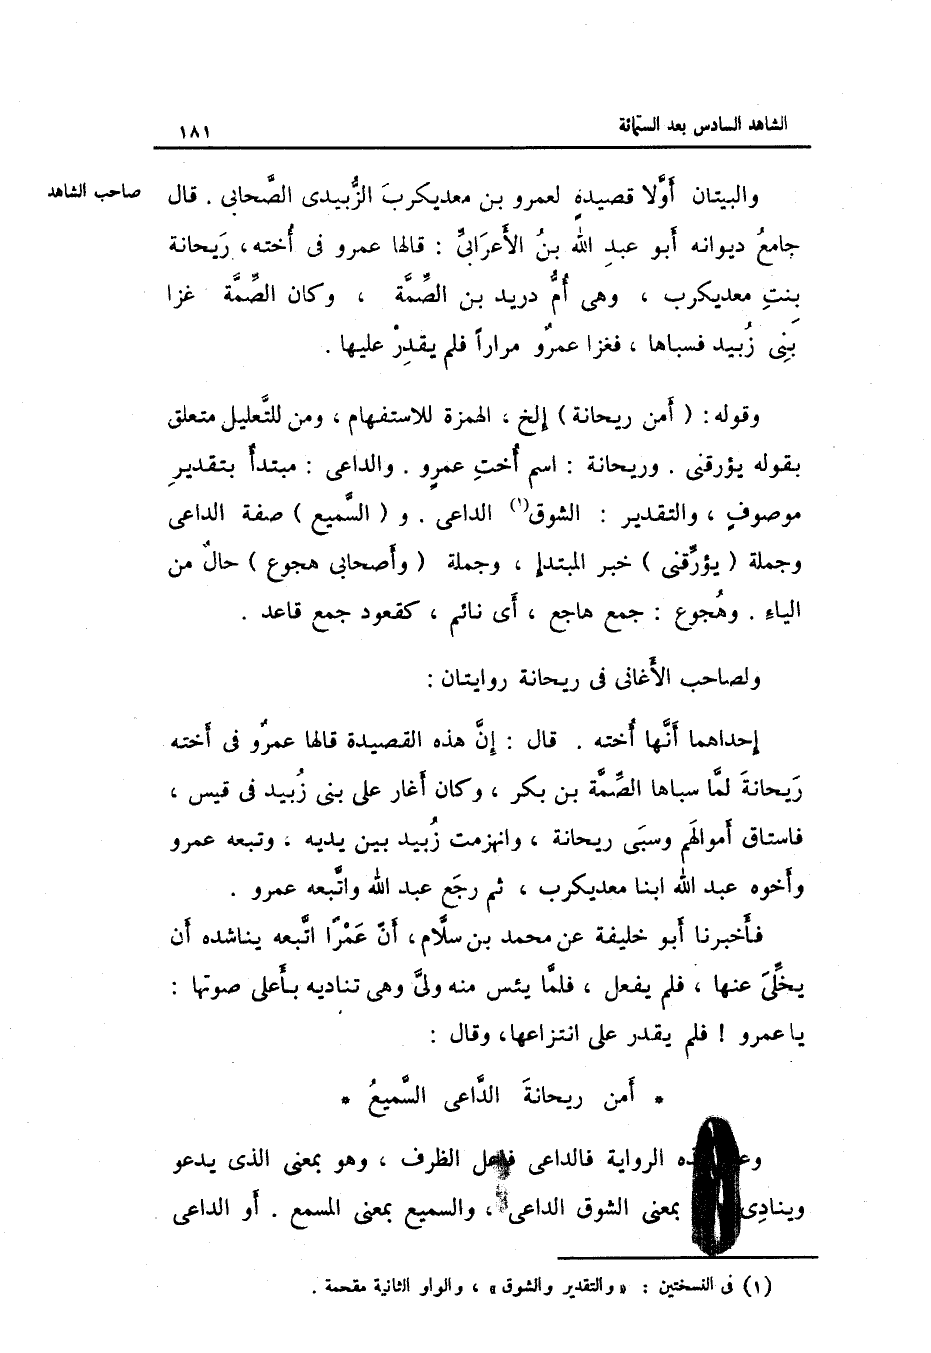 الشاهد السادس بعد الستمائة ١٨١
والبيتان أوَّلا قصيدةٍ لعمرو بن معديكربَ الزُّبيدى الصَّحابى . قال
صاحب الشاهد
جامعُ ديوانه أبو عبدِ الله بنُ الأَعرَابىِّ : قالها عمرو فى أُخته، رَيحانة
بِنتِ معديكرب ، وهى أُمُّ دريد بن الصِّمَّة ، وكان الصِّمَّة غزا
بَنِى زُبيد فسباها ، فغزا عمرٌو مراراً فلم يقدِرْ عليها .
وقوله : ( أَمن ريحانة ) إلخ ، الهمزة للاستفهام ، ومن للتَّعليل متعلق
بقوله يؤرقنى . وريحانة : اسم أُختِ عمرٍو . والداعى : مبتدأٌ بتقديرِ
موصوفٍ ، والتقدير : الشوق(١) الداعى . و ( السَّميع ) صفة الداعى
وجملة ( يؤرِّقنى ) خبر المبتدإ ، وجملة ( وأَصحابى هجوع ) حالٌ من
الياءِ . وهُجوع : جمع هاجع ، أى نائم ، كقعود جمع قاعد .
ولصاحب الأَغانى فى ريحانة روايتان :
إحداهما أنَّها أُخته . قال : إنَّ هذه القصيدة قالها عمرٌو فى أَخته
رَيحانةَ لمَّا سباها الصِّمَّة بن بكر ، وكان أَغار على بنى زُبيد فى قيس ،
فاستاق أَموالهَم وسبَى ريحانة ، وانهزمت زُبيد بين يديه ، وتبعه عمرو
وأَخوه عبد الله ابنا معديكرب ، ثم رجَع عبد الله واتَّبعه عمرو .
فأَخبرنا أبو خليفة عن محمد بن سلَّام، أَنَّ عَمْرًا اتَّبعه يناشده أَن
يخلِّىَ عنها ، فلم يفعل ، فلمَّا يئس منه ولىَّ وهى تناديه بأَعلى صوتها :
يا عمرو ! فلم يقدر على انتزاعها، وقال :
* أَمن ريحانةَ الدَّاعى السَّميعُ *
الرواية فالداعى فاعل الظرف ، وهو بمعنى الذى يدعو
وينادِى بمعنى الشوق الداعى ، والسميع بمعنى المسمع . أَو الداعى
(١) فى النسختين : « والتقدير والشوق » ، والواو الثانية مقحمة .